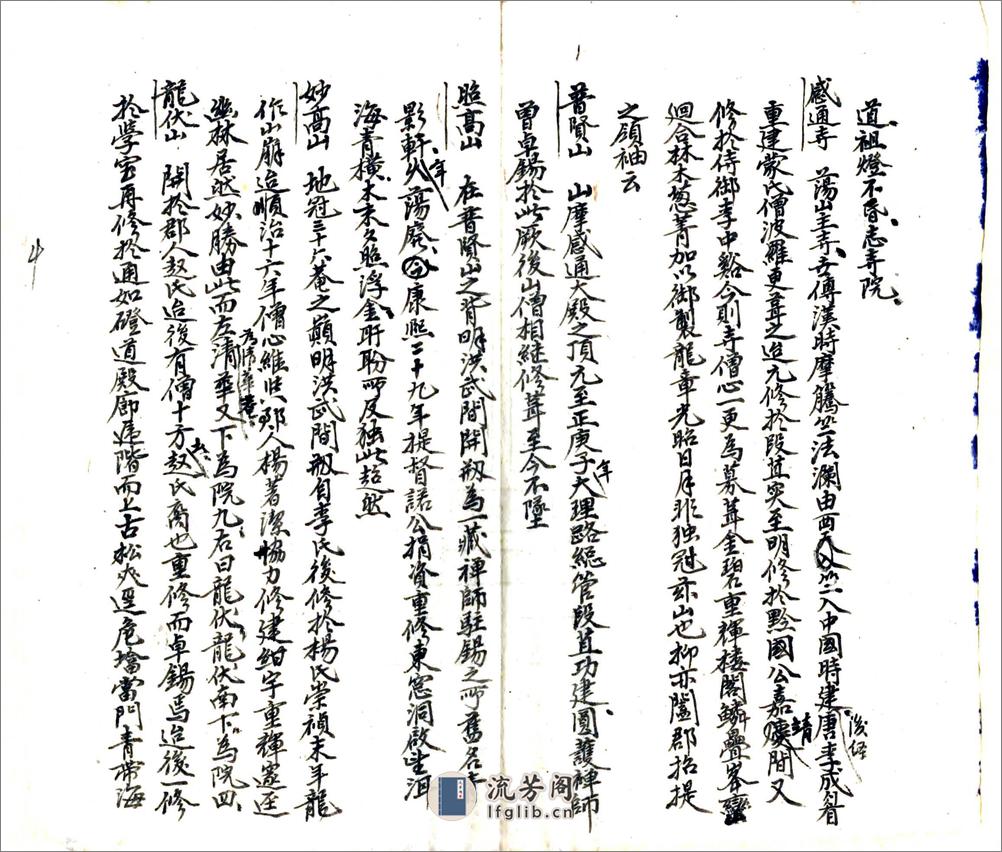 道祖燈不昏志寺院
感通寺 蕩山主寺古傳漢時摩騰竺法瀾由西天竺入中國時建唐李成眉
後經
重建蒙氏僧波羅更葺之迨元修於段至明修於黔國公嘉靖間又
修於侍御李中谿今則寺僧心一更為募葺金碧重輝楼閣鱗疊峯巒
迴合林木葱菁加以御製龍章光昭日月非独冠茲山也抑亦闔郡招提
之領袖云
普賢山 山摩感通大殿之頂元至正庚子年大理路總管段直功建圓護禅師
曾卓錫於此厥後山僧相継修葺至今不墜
照高山 在普賢山之背明洪武間開剏為一藏禅師駐錫之所舊名
影軒年火蕩廢今康熙二十九年提督諾公捐資重修東窓洞啟坐洱
海青横木末久照浮金盻所及独此超然
妙高山 地冠三十六菴之巔明洪武間剏自李氏後修於楊氏崇禎末年龍
作山崩迨順治十六年僧心維郡人楊著潔協力修建紺宇重輝邃
林居然妙勝由此而左清華又下為院九右曰龍伏龍伏南下為院四
龍伏山 開於郡人赵氏迨後有僧十方赵氏裔也重修而卓錫焉迨後一修
於學空再修於通如磴道殿廊遞階而上古松夾逕危墻當門青海
4
流芳阁
lfglib.cn